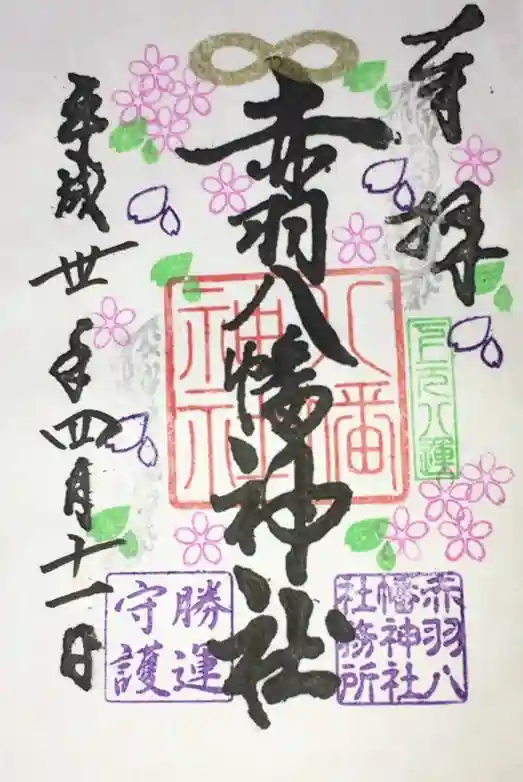 奉拝
赤羽八幡神社
八幡
神社
赤羽八
幡神社
社務所
勝運
守護
平成卅年四月十一日